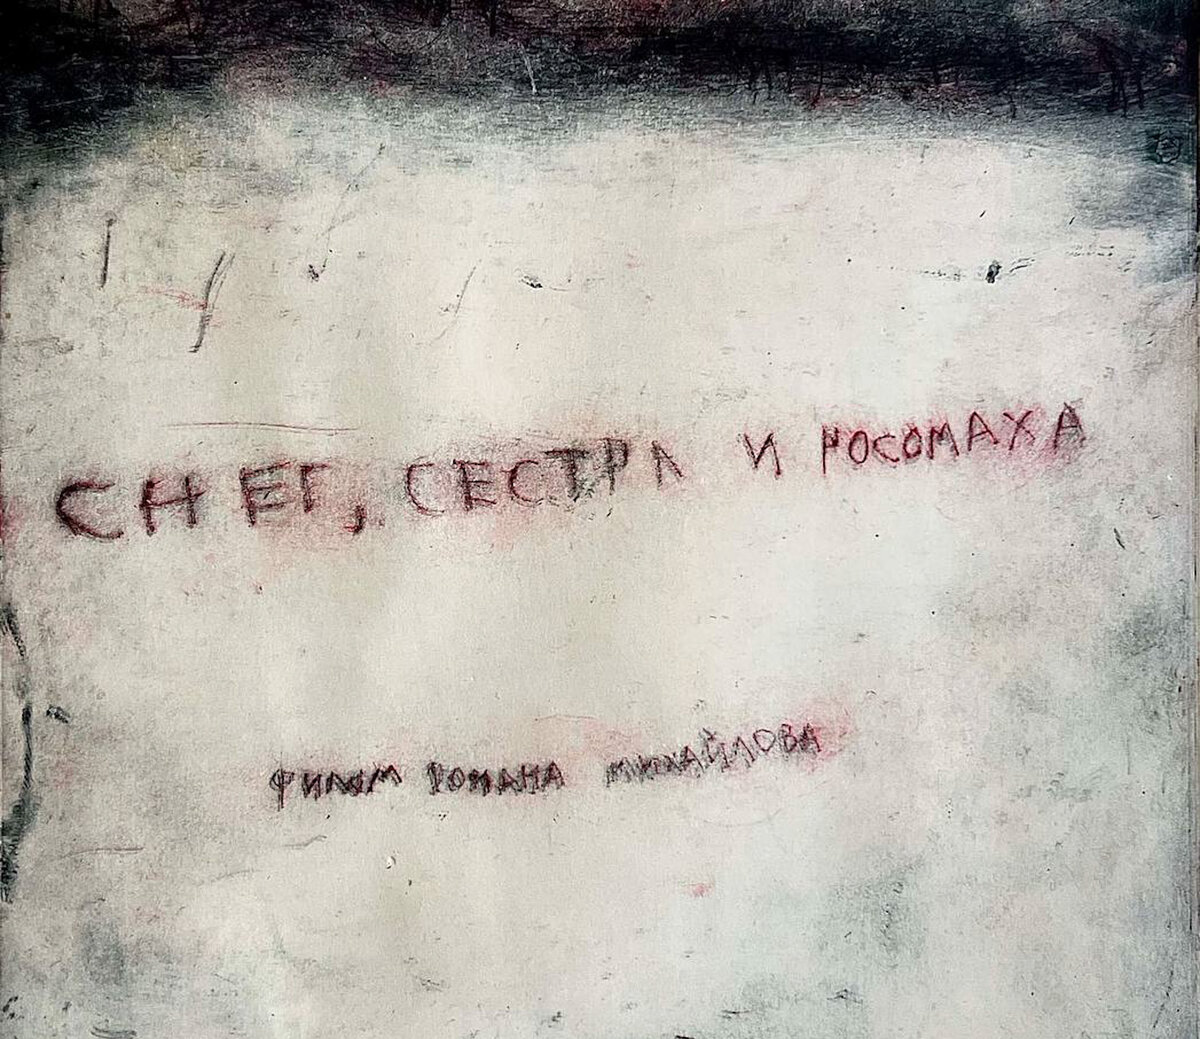 СНЕГ, СЕСТРА И РОСОМАХА
ФИЛЬМ РОМАНА МИХАЙЛОВА